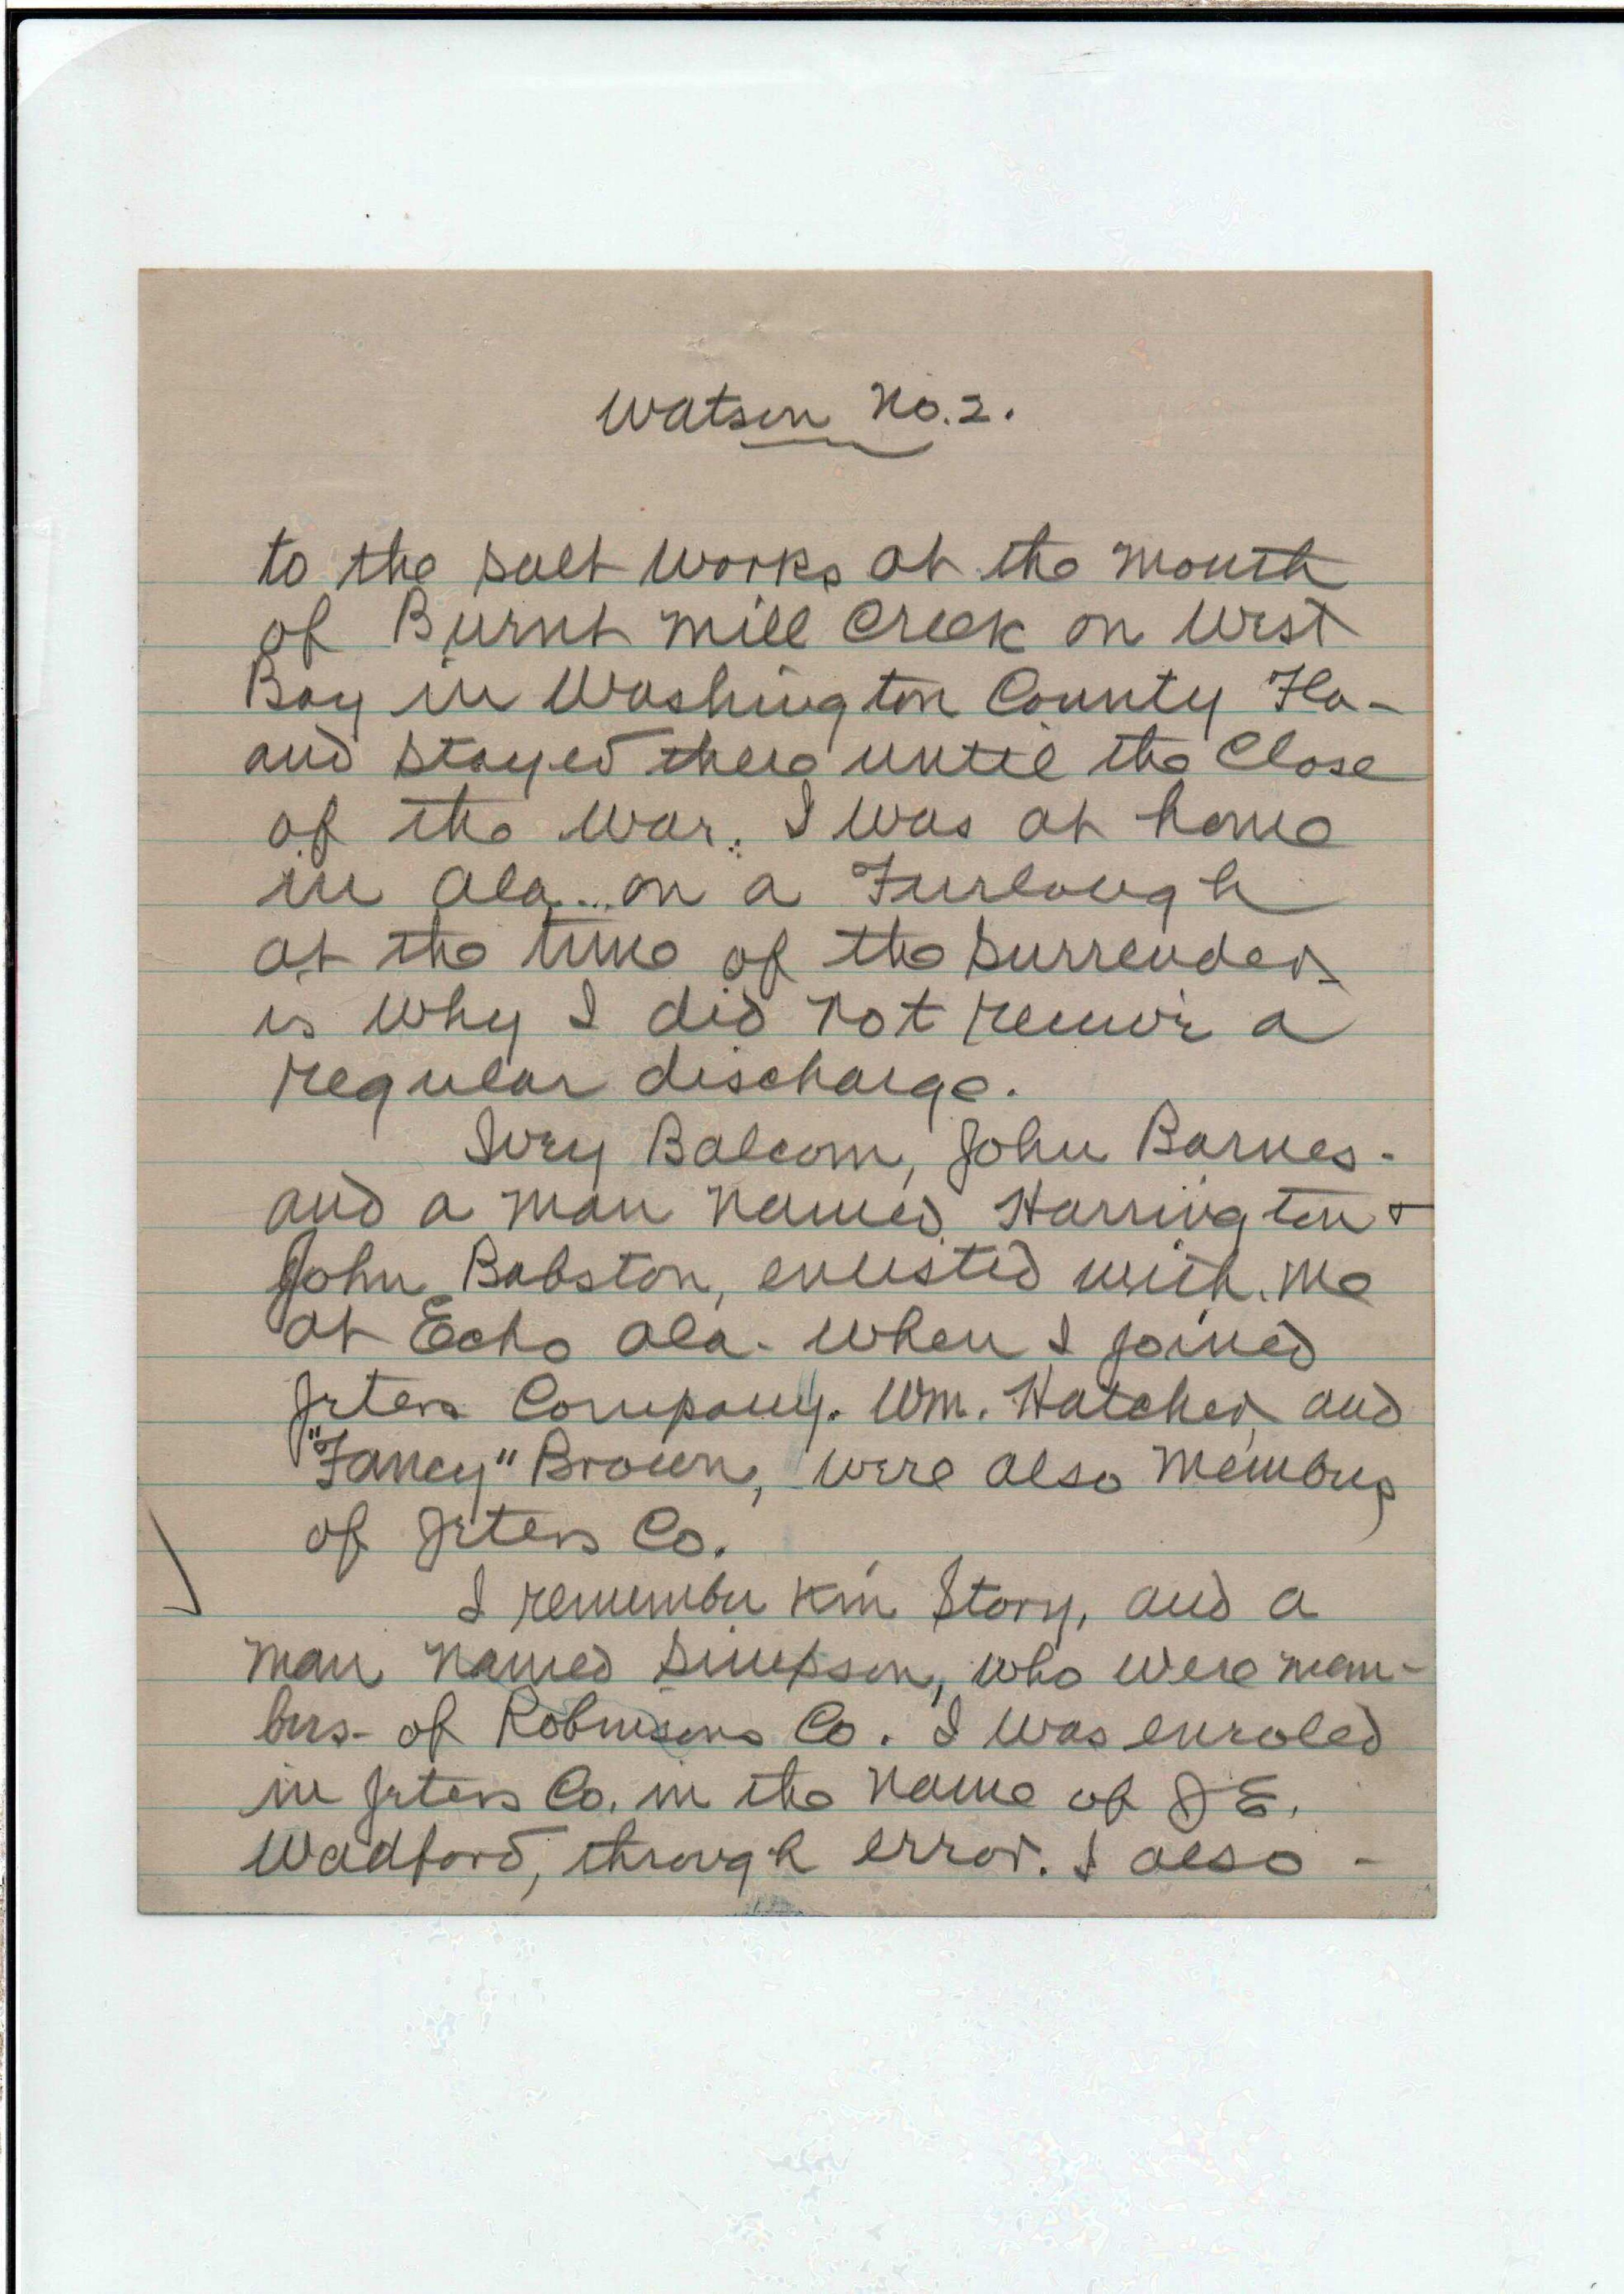 Watson No. 2.
to the salt works at the mouth
of Burnt Mill Creek on West
Bay in Washington County Fla-
and stayed there until the Close
of the War. I was at home
in Ala. on a Furlough
at the time of the surrender
is why I did not receive a
regular discharge.
Ivey Balcom, John Barnes-
and a man named Harrington &
John Babston, enlisted with me
at Echo Ala- when I joined
Jeters Company. Wm. Hatcher and
"Fancy" Brown, were also members
of Jeters Co.
I remember Kin Story, and a
man named Simpson, who were mem-
bers- of Robinsons Co. I was enroled
in Jeters Co. in the name of J E.
Wadford, through error. I also -